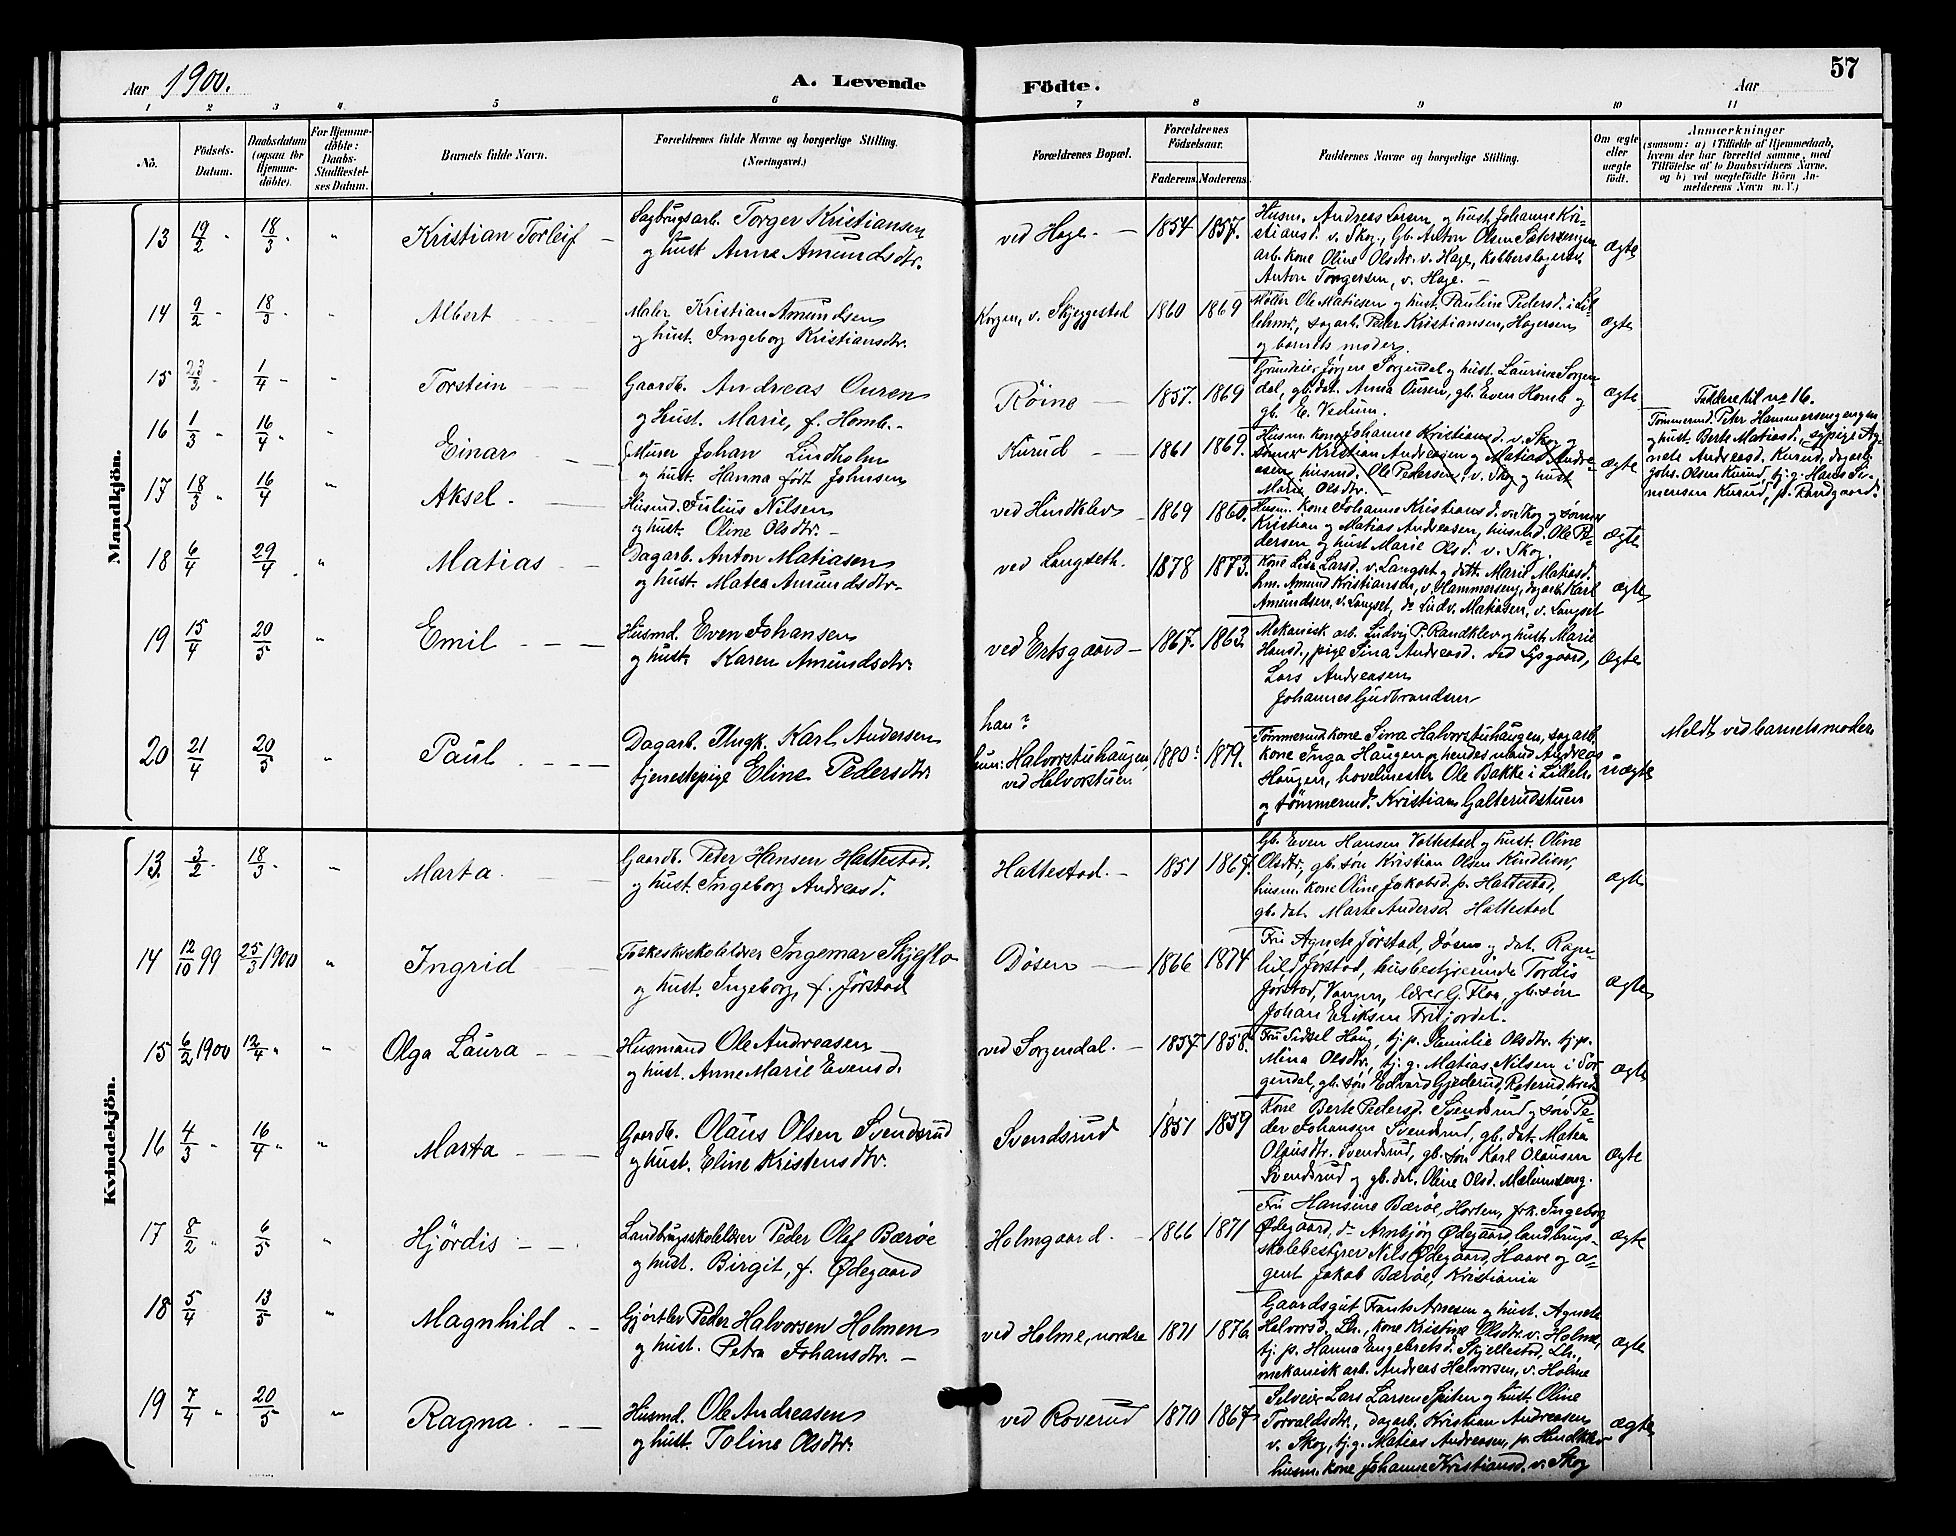 Aar 1900.
A. Levende
Födte.
Aar
57
1 2 3 4 5 6 7 8 9 10 11
No.
Födsels-
Datum.
Daabsdatum
(ogsaa for
Hjemme-
döbte).
For Hjemme-
döbte:
Daabs-
Stadfæstel-
ses Datum.
Barnets fulde Navn.
Forældrenes fulde Navne og borgerlige Stilling.
(Næringsvei.)
Forældrenes Bopæl.
Forældrenes
Födselsaar.
Faderens. Moderens.
Faddernes Navne og borgerlige Stilling.
Om ægte
eller
uægte
födt.
Anmærkninger
(saasom: a) i Tilfælde af Hjemmedaab,
hvem der har forrettet samme, med
Tilföielse af to Daabsvidners Navne,
og b) ved uægtefödte Börn An-
melderens Navn m. V.)
Mandkjön.
13 19/2 " 18/3 " " Kristian Torleif — Sagbrugsarb. Torger Kristiansen
og hust. Anne Amundsdtr.
ved Hage. — 1854 1857.
Husm. Andreas Larsen og hust. Johanne Kri-
stiansd. v. Skog, Gb. Anton Olsen Sæterengen
arb. kone Oline Olsdtr. v. Hage, kobberslagersv.
Anton Torgersen, v. Hage. —
ægte
14 9/2 " 18/3 " " Albert Maler Kristian Amundsen
og hust. Ingeborg Kristiansdtr.
Korgen, v. Skjeggestad 1860 1869
Möller Ole Matiesen og hust. Pauline Pedersd. i Lil-
lehmr., sagarb. Peder Kristiansen, Hagersen
og barnets moder.
ægte
15 23/2 " 1/4 " " Torstein Gaardb. Andreas Ouren
og Hust. Marie, f. Homb. —
Röine — 1857. 1869
Grundeier Jörgen Sorgendal og hust. Laurine Sorgen-
dal, gb. dat. Anna Ouren, gb. Even Homb og
gb. E. Vedum.
ægte
16 1/3 " 16/4 " Einar Murer Johan Lindholm
og hust. Hanna født Johnsen
Kurud — 1861 1869.
Husm. kone Johanne Kristiansd. v. Skog og
sönner Kristian Andreasen og Matias Andre-
asen, husmd. Ole Pedersen, v. Skog og hust.
Marie Olsdtr.
ægte
Faddere til no 16.
Tömmermd. Peter Hammersengengen
og hust. Berte Matiasd., sypige Ag-
nete Andreasd. Kurud, dagarb.
Johs. Olsen Kurud, tj. g. Hans Si-
mensen Kurud, p. Randgaard.
17 18/3 " 16/4 " Aksel. — Husmd. Julius Nilsen
og hust. Oline Olsdtr. —
ved Hindklev — 1869 1860.
Husm. kone Johanne Kristiansd. v. Skog og sönner
Kristian og Matias Andreasen, husmd. Ole Pe-
dersen og hust Marie Olsd. v. Skog.
ægte
18 6/4 29/4 " Matias — Dagarb. Anton Matiasen
og hust. Matea Amundsdtr. —
ved Langseth. 1878 1873.
Kone Lise Larsd. v. Langset og datt. Marie Matiasd.
hm. Amund Kristiansen, v. Hammerseng, dagarb. Karl
Amundsen, v. Langset, do Ludv. Matiasen, v. Langset
ægte
19 15/4 20/5 " Emil — Husmd. Even Johansen
og hust. Karen Amundsdtr.
ved Ertsgaard — 1867. 1863.
Mekanisk arb. Ludvig P. Randklev og hust. Marie
Hansd., pige Sina Andreasd. ved Lysgaard,
Lars Andreasen
Johannes Gudbrandsen
ægte
20 21/4 20/5 " Paul — Dagarb. Plugk. Karl Andersen
tjenestepige Eline Pedersdtr.
han?
hun: Halvorstuhaugen,
ved Halvorstuen
1880? 1879.
Tömmermd. kone Sina Halvorstuhaugen, sagarb.
kone Inga Haugen og hendes mand Andreas
Haugen, hovelmester Ole Bakke i Lilleh.
og tömmermd. Kristian Galterudstuen
uægte
Meldt ved barnets moder
Kvindekjön.
13. 3/2 " 18/3 " Marta — Gaardb. Peder Hansen Hattestad.
og hust. Ingeborg Andreasd.
Hattestad. — 1851 1867.
Gb. Even Hansen Voltestad og hust. Oline
Olsdtr., gb. søn Kristian Olsen Kindlien,
husm. kone Oline Jakobsd. p. Hattestad,
gb. dat. Marte Andersd Hattestad
ægte
14 12/10 99 25/3 1900 " Ingrid — Folkeskolelærer Ingemar Skjeflo
og hust. Ingeborg, f. Jörstad
Dösen — 1866 1874
Fru Agnete Jörstad, Dösen og dat. Ragn-
hild Jörstad, husbestyrerinde Tordis
Jörstad, Vangen, lærer G. Floa, gb. søn
Johan Eriksen Frisjordet.
ægte
15 6/2 1900 12/4 " " Olga Laura — Husmand Ole Andreasen
og hust. Anne Marie Evensd.
ved Sorgendal. — 1857 1858.
Fru Sidsel Haug, tj. p. Emilie Olsdtr. tj. p.
Mina Olsdtr., tj. g. Matias Nilsen i Sor-
gendal, gb. søn Edvard Gjæderud,
ægte
16 4/3 " 16/4 " " Marta — Gaardb. Olaus Olsen Svendsrud
og hust. Eline Kristensdtr.
Svendsrud 1851 1859
Kone Berte Pedersd. Svendsrud og søn Pe-
der Johansen Svendsrud, gb. dat. Matea
Olausdtr. Svendsrud, gb. søn Karl Olausen
Svendsrud og gb. dat. Oline Olsd.
ægte
17 8/2 " 6/5 " Hjördis — Landbrugsskolelærer Peder Olaf Bærøe
og hust. Birgit, f. Ødegaard
Holmgaard. — 1866 1871
Fru Hansine Bærøe, Horten, frk. Ingeborg
Ødegaard, do Arnbjørg Ødegaard, landbrugs-
skolebestyrer Nils Ødegaard, Haave og a-
gent Jakob Bærøe, Kristiania
ægte
18 5/4 13/5 " Magnhild — Gjörtler Peder Halvorsen Holmen
og hust. Petra Johansdtr. —
ved Holme, nordre 1871 1876
Gaardsgut Frants Arnesen og hust. Agnete
Halvorsd. Lh., kone Kristine Olsdtr. v. Holme,
tj. p. Hanna Engebretsd. Skjellestad, Lh.,
mekanisk arb. Andreas Halvorsen, v. Holme
ægte
19 7/4 " 20/5 " Ragna. — Husmd. Ole Andreasen
og hust. Toline Olsdtr.
ved Roverud 1870 1867
Selveier Lars Larsen og hust. Oline
Torvaldsdtr., dagarb. Kristian Andreasen
v. Skog, tj. g. Matias Andreasen, p. Hindklev
husm. kone Johanne Kristiansd. v. Skog
ægte